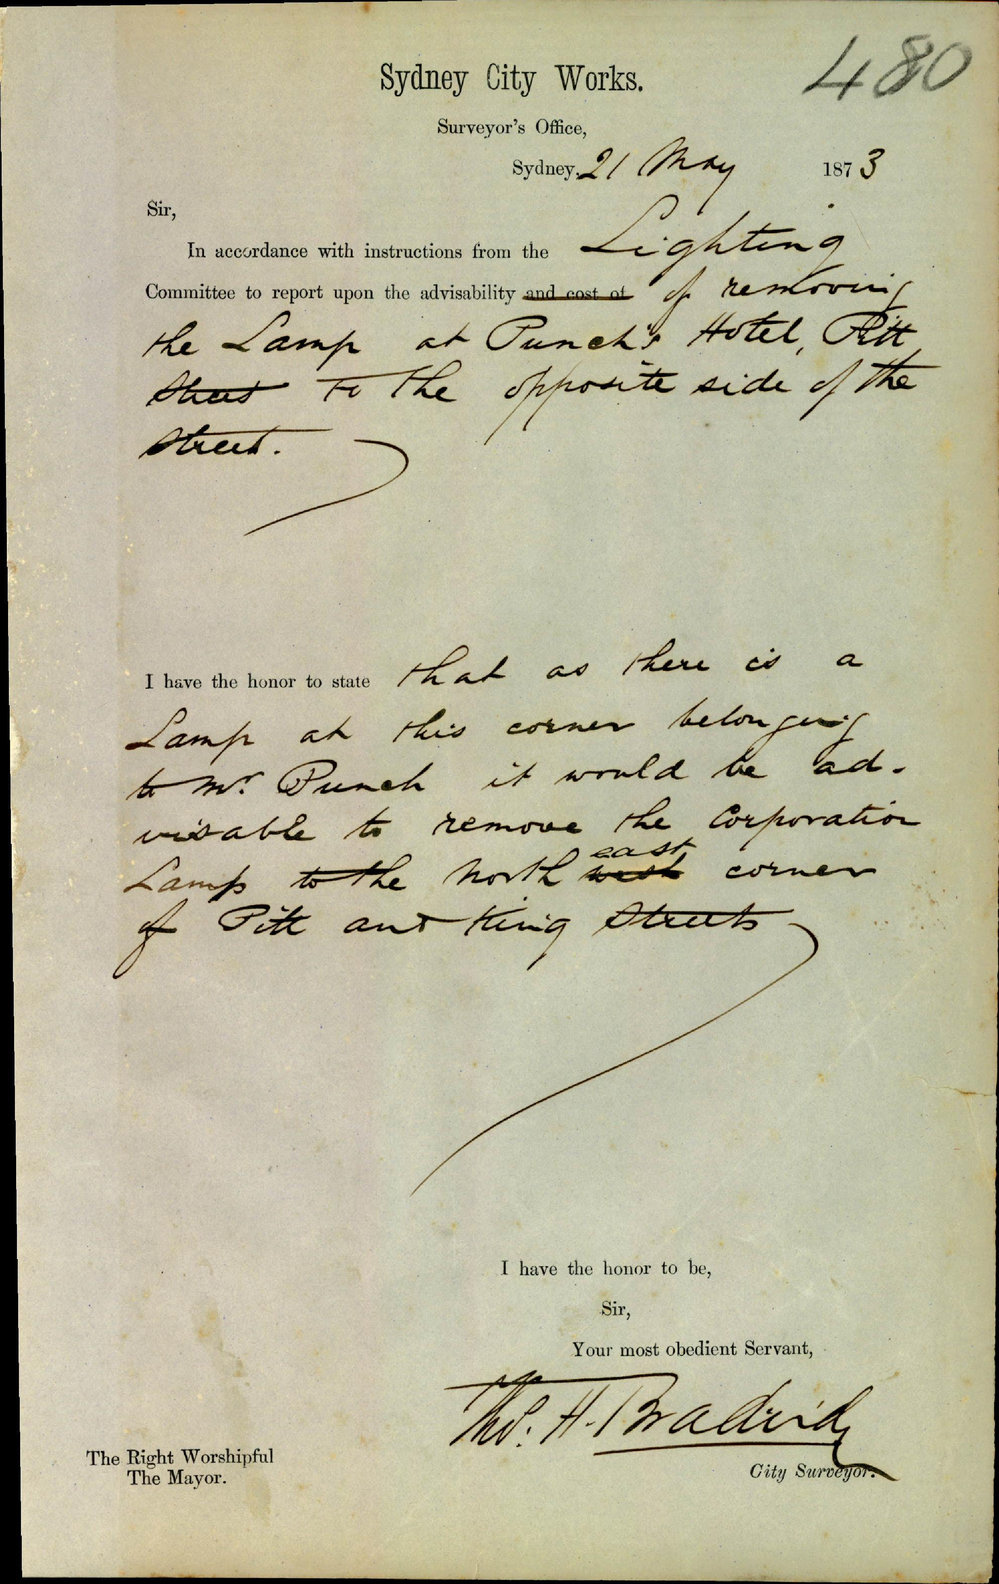 480
Sydney City Works.
Surveyor's Office,
Sydney, 21 May 1873
Sir,
In accordance with instructions from the Lighting
Committee to report upon the advisability and cost of of removing
the Lamp at Punch's Hotel, Pitt
Street to the opposite side of the
Street.
I have the honor to state that as there is a
Lamp at this corner belonging
to Mr. Punch it would be ad-
visable to remove the Corporation
east
Lamp to the North west corner
of Pitt and King Streets
I have the honor to be,
Sir,
Your most obedient Servant,
Thos. H. Bradridge
City Surveyor.
The Right Worshipful
The Mayor.